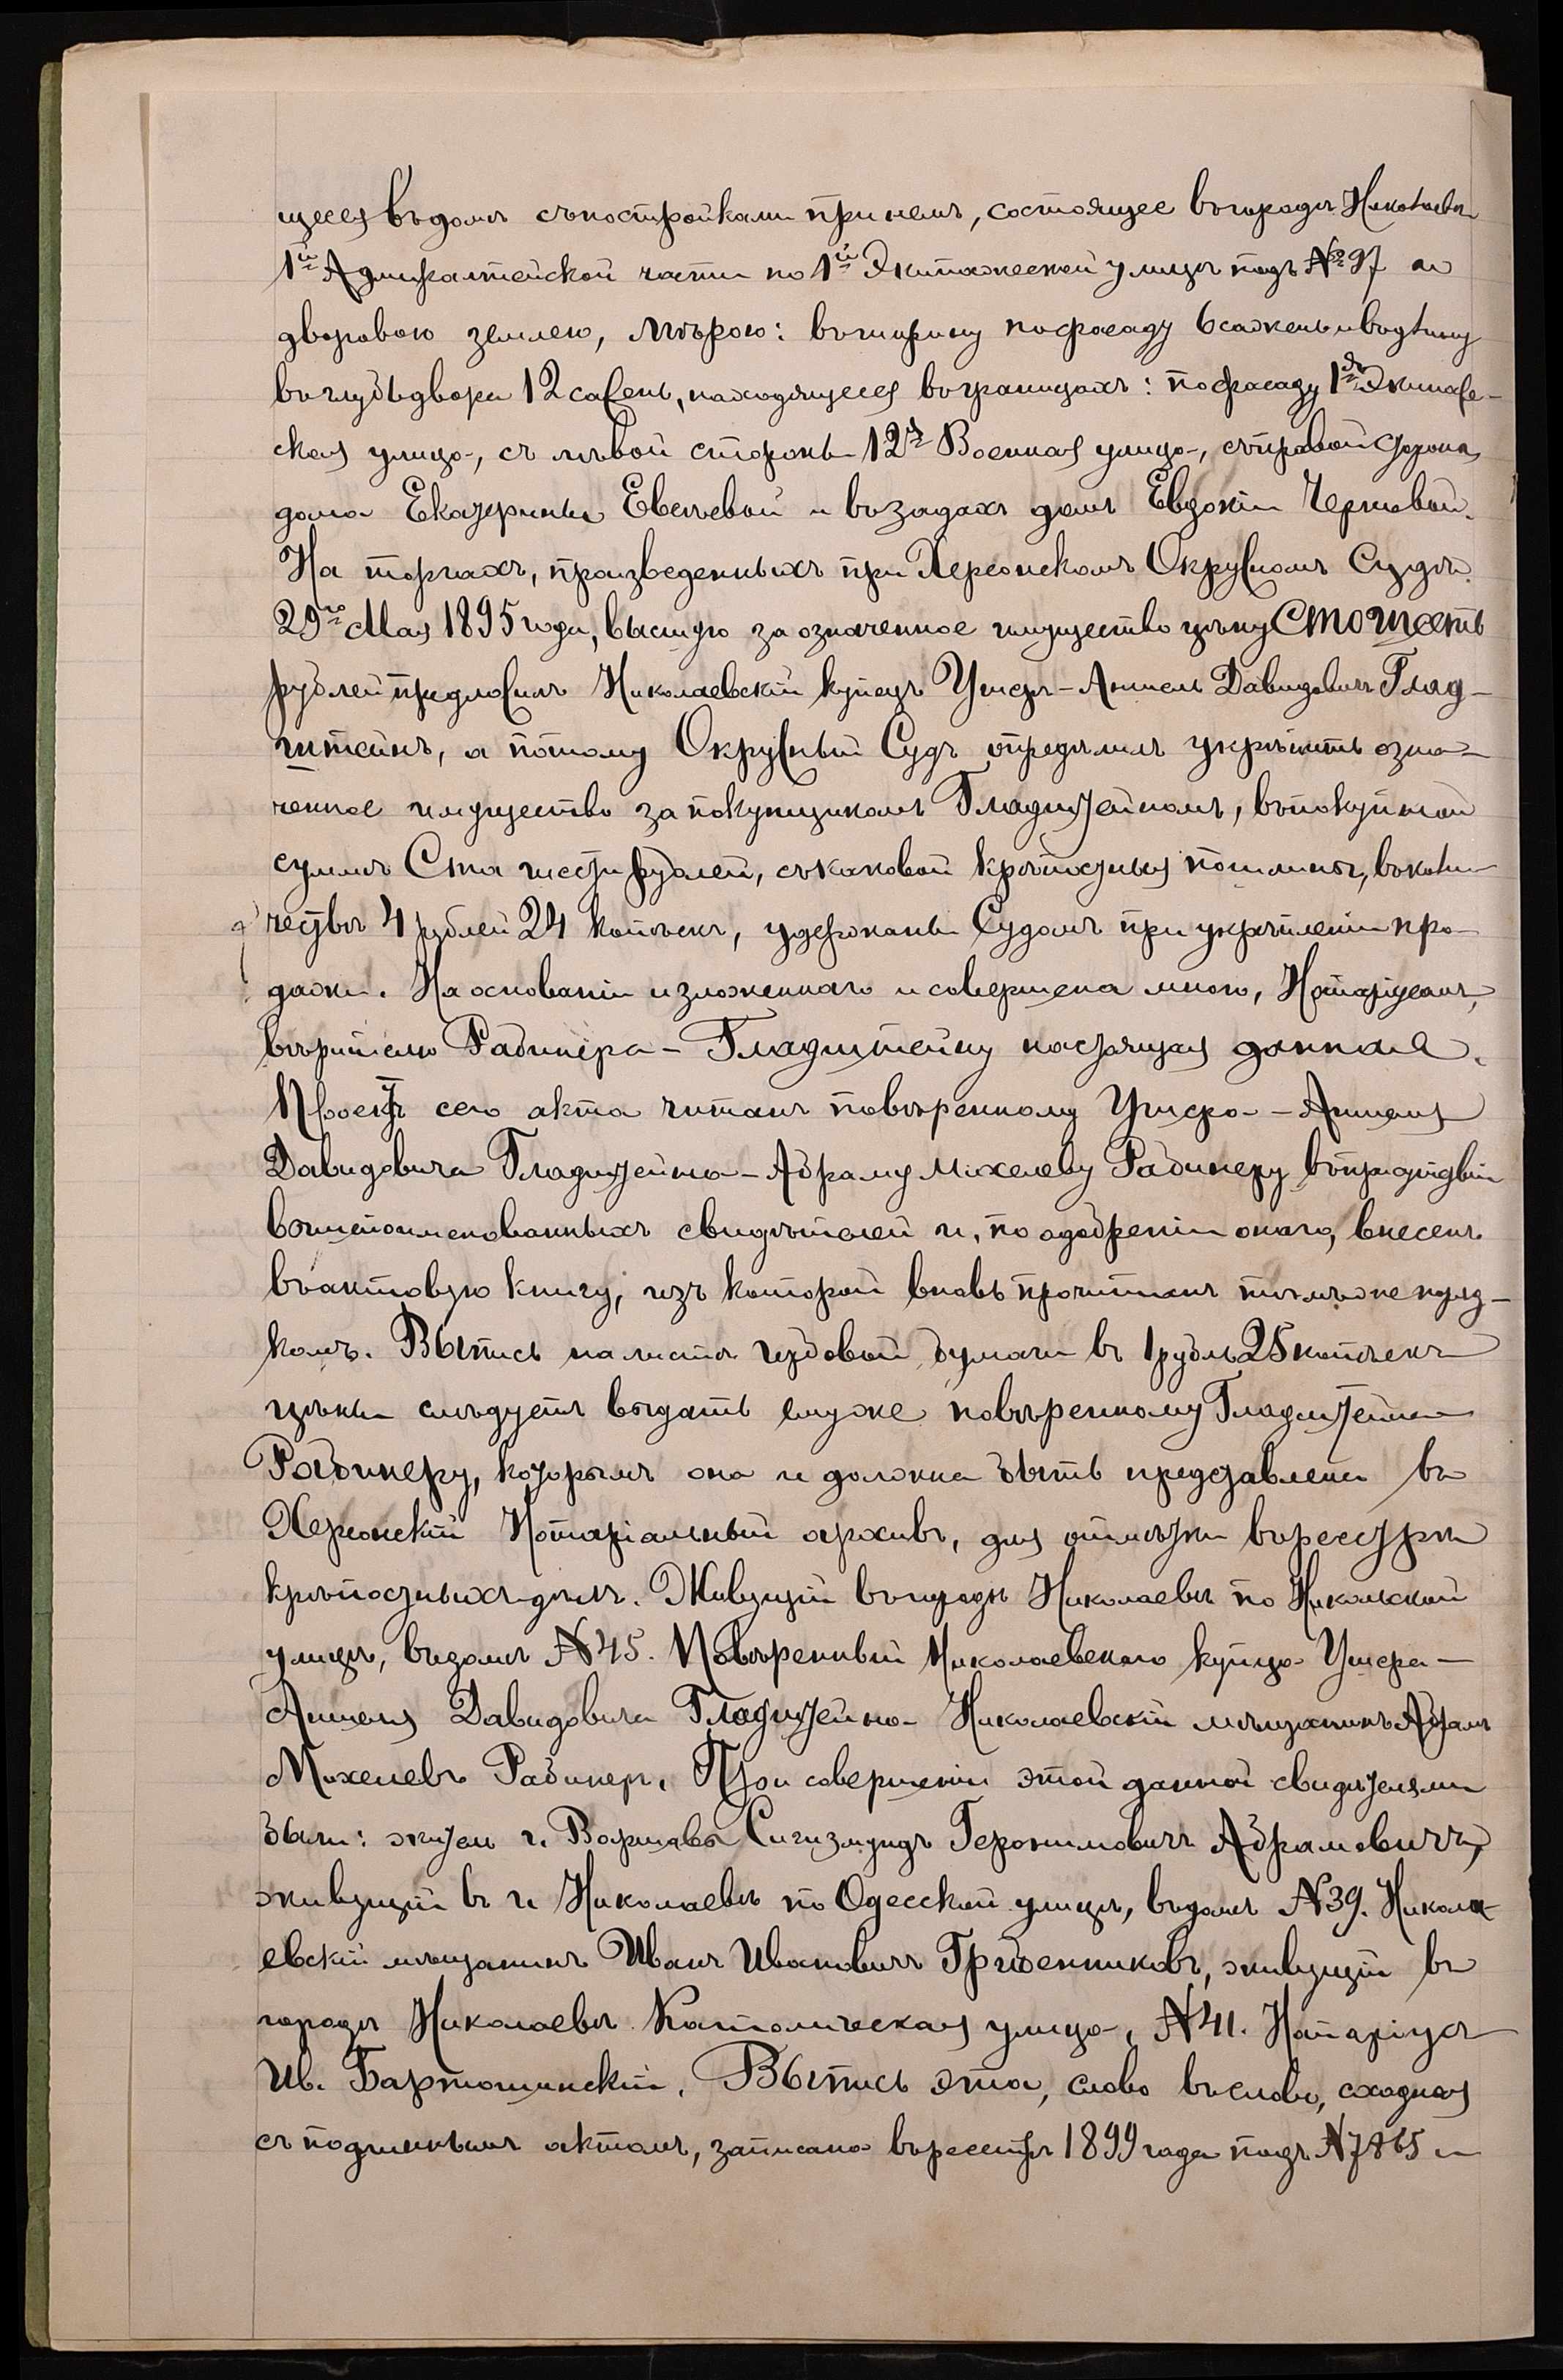 щееся въ домѣ съ постройками при немъ, состоящее въ городѣ Николаевѣ
1й Адмиралтейской части по 1й Экипажеской улицѣ подъ №97 со
дворовою землею, мѣрою: въ ширину по фасаду 6 сажень и въ длину
въ глубь двора 12 сажень, находящееся въ границахъ: по фасаду 1я Экипаже-
ская улица, съ лѣвой стороны 12я Военная улица, съ правой стороны
дома Екатерины Евсѣевой и въ задахъ домъ Евдокіи Черновой.
На торгахъ, произведенныхъ при Херсонскомъ Окружномъ Судѣ
29го Мая 1895 года, высшую за означенное имущество цѣну Сто шесть
рублей предложилъ Николаевскій купецъ Ушеръ-Аншель Давидовичъ Глад-
штейнъ, а потому Окружный Судъ опредѣлилъ укрѣпить озна-
ченное имущество за покупщикомъ Гладштейномъ, въ покупной
суммѣ Ста шести рублей, съ каковой крѣпостныя пошлины, въ коли-
чествѣ 4 рублей 24 копѣекъ, удержаны Судомъ при укрѣпленіи про-
дажи. На основаніи изложеннаго и совершена мною, Нотаріусомъ,
вѣрителю Рабинера - Гладштейну настоящая данная.
Проектъ сего акта читанъ повѣренному Ушера-Аншеля
Давидовича Гладштейна - Абраму Михелеву Рабинеру въ присутствіи
вышепоименованныхъ свидѣтелей и, по одобреніи онаго, внесенъ
въ актовую книгу, изъ которой вновь прочитанъ тѣмъ же поряд-
комъ. Выпись на листѣ гербовой бумаги въ 1 рубль 25 копѣекъ
цѣны слѣдуетъ выдать ему же повѣренному Гладштейна
Рабинеру, которымъ она и должна быть представлена въ
Херсонскій Нотаріальный архивъ, для отмѣтки въ реестрѣ
крѣпостныхъ дѣлъ. Живущій въ городѣ Николаевѣ по Никольской
улицѣ, въ домѣ №45. Повѣренный Николаевскаго купца Ушера-
Аншеля Давидовича Гладштейна - Николаевскій мѣщанинъ Абрамъ
Михелевъ Рабинеръ. При совершеніи этой данной свидѣтелями
были: житель г. Варшавы Сигизмундъ Геронимовичъ Абрамовичъ,
живущій въ г. Николаевѣ по Одесской улицѣ, въ домѣ №39. Никола-
евскій мѣщанинъ Иванъ Ивановичъ Гребенниковъ, живущій въ
городѣ Николаевѣ Католическая улица, №41. Нотаріусъ
Ив. Бартошинскій. Выпись эта, слово въ слово, сходная
съ подлиннымъ актомъ, записана въ реестръ 1899 года подъ №7865 и